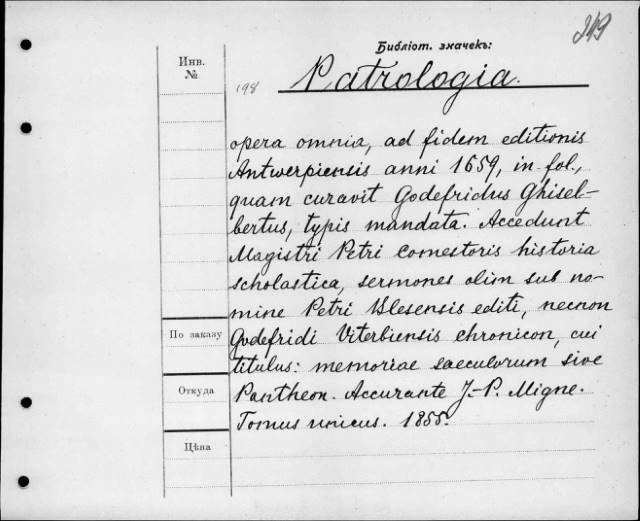 349
Библіот. значекъ:
Инв.
№
198
Patrologia.
opera omnia, ad fidem editionis
Antwerpiensis anni 1659, in fol.,
quam curavit Godefridus Ghisel-
bertus, typis mandata. Accedunt
Magistri Petri Comestoris historia
scholastica, sermones olim sub no-
mine Petri Blesensis editi, necnon
Godefridi Viterbiensis chronicon, cui
titulus: memoriae saeculorum sive
Pantheon. Accurante J.-P. Migne.
Tomus unicus. 1855.
По заказу
Откуда
Цѣна